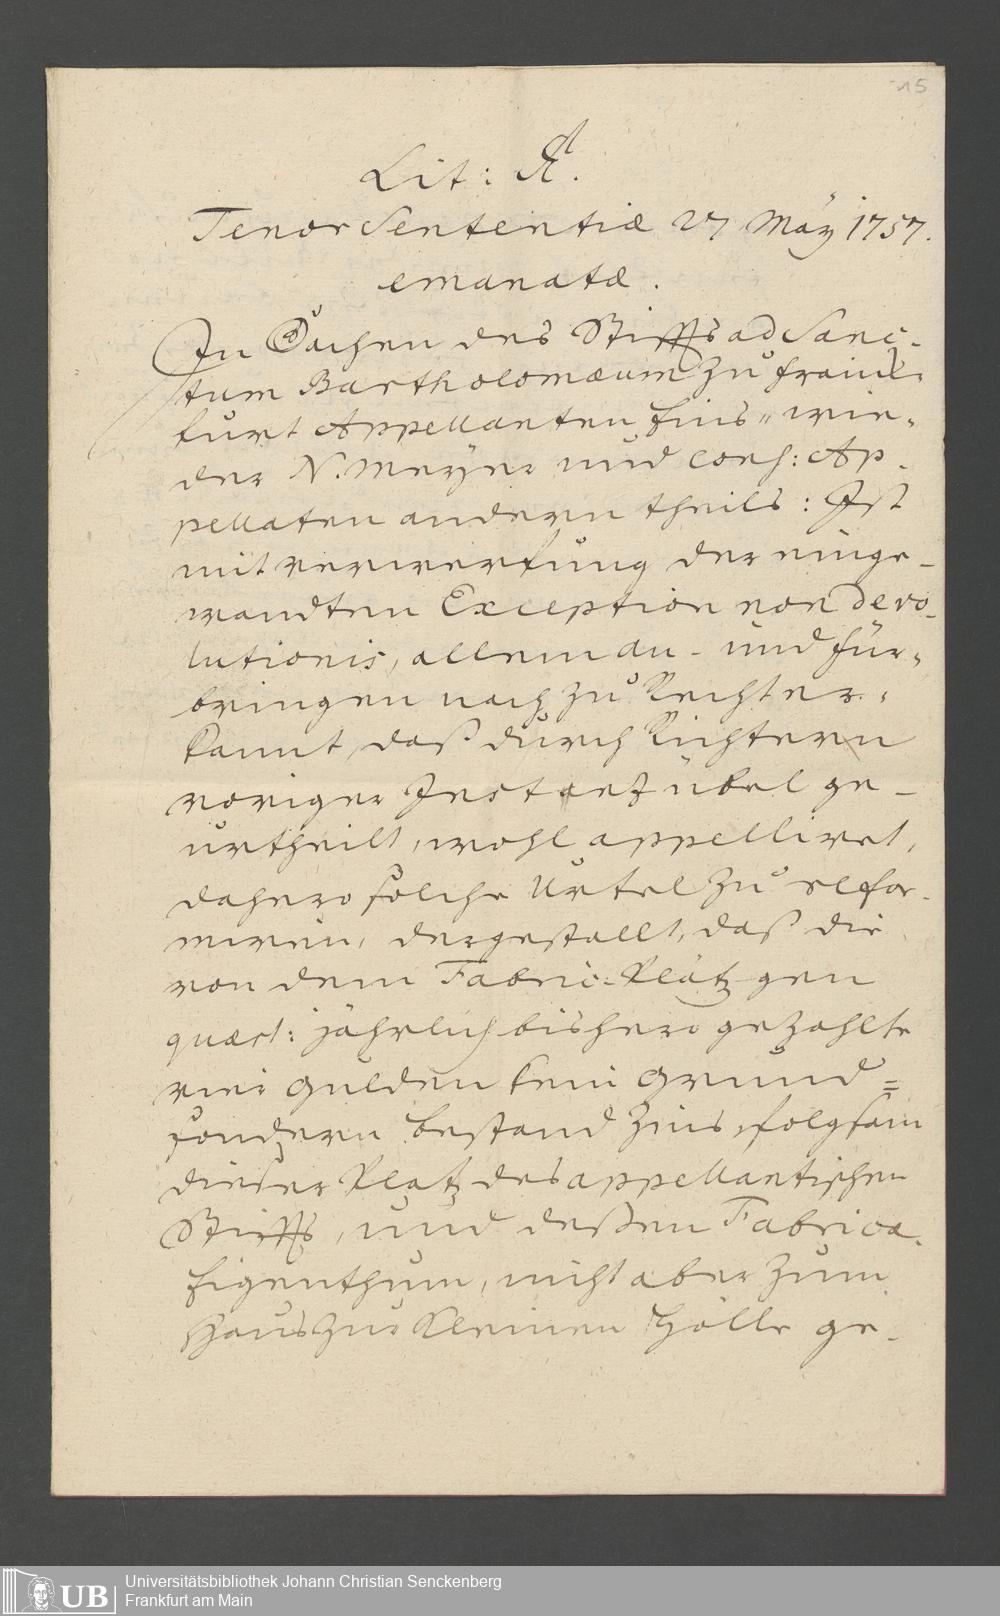 15
Lit: A.
Tenor Sententiæ 27 Maÿ 1757.
emanatæ.
In Sachen des Stiffts ad Sanc-
tum Bartholomæum zu Franck-
furt Appellanten Eins" wie-
der N. Meÿer und Cons: Ap-
pellaten andern theils: Ist
mit verwerfung der einge-
wandten Exception non devo-
lutionis, allem an- und für-
bringen nach zu Recht er-
kannt, daß durch Richtern
voriger Instantz übel ge-
urtheilt, wohl appelliret,
dahero solche Urtel zu refor-
miren, dergestallt, daß die
von dem Fabric-Plätzgen
quæst: jährlich bishero gezahlte
vier Gulden kein Grund=
sondern bestand Zins, folgsam
dieser Platz des appellantischen
Stiffts, und deßen Fabricæ
Eigenthum, nicht aber zum
Haus zur Kleinen Hölle ge-
UB
Universitätsbibliothek Johann Christian Senckenberg
Frankfurt am Main